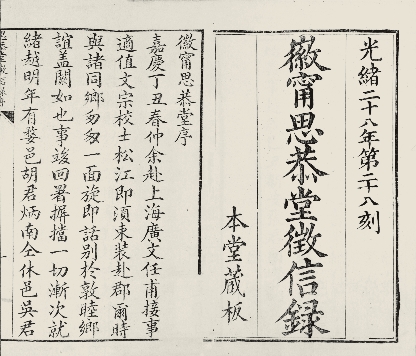 光緒二十八年第二十八刻
徽甯思恭堂徵信錄
本堂藏板
徽甯思恭堂序
嘉慶丁丑春仲余赴上海廣文任甫接事
適值文宗校士松江即須束裝赴郡爾時
與諸同鄉匆匆一面旋即話別於敦睦鄉
誼蓋闕如也事竣回署摒擋一切漸次就
緒越明年有婺邑胡君炳南仝休邑吳君